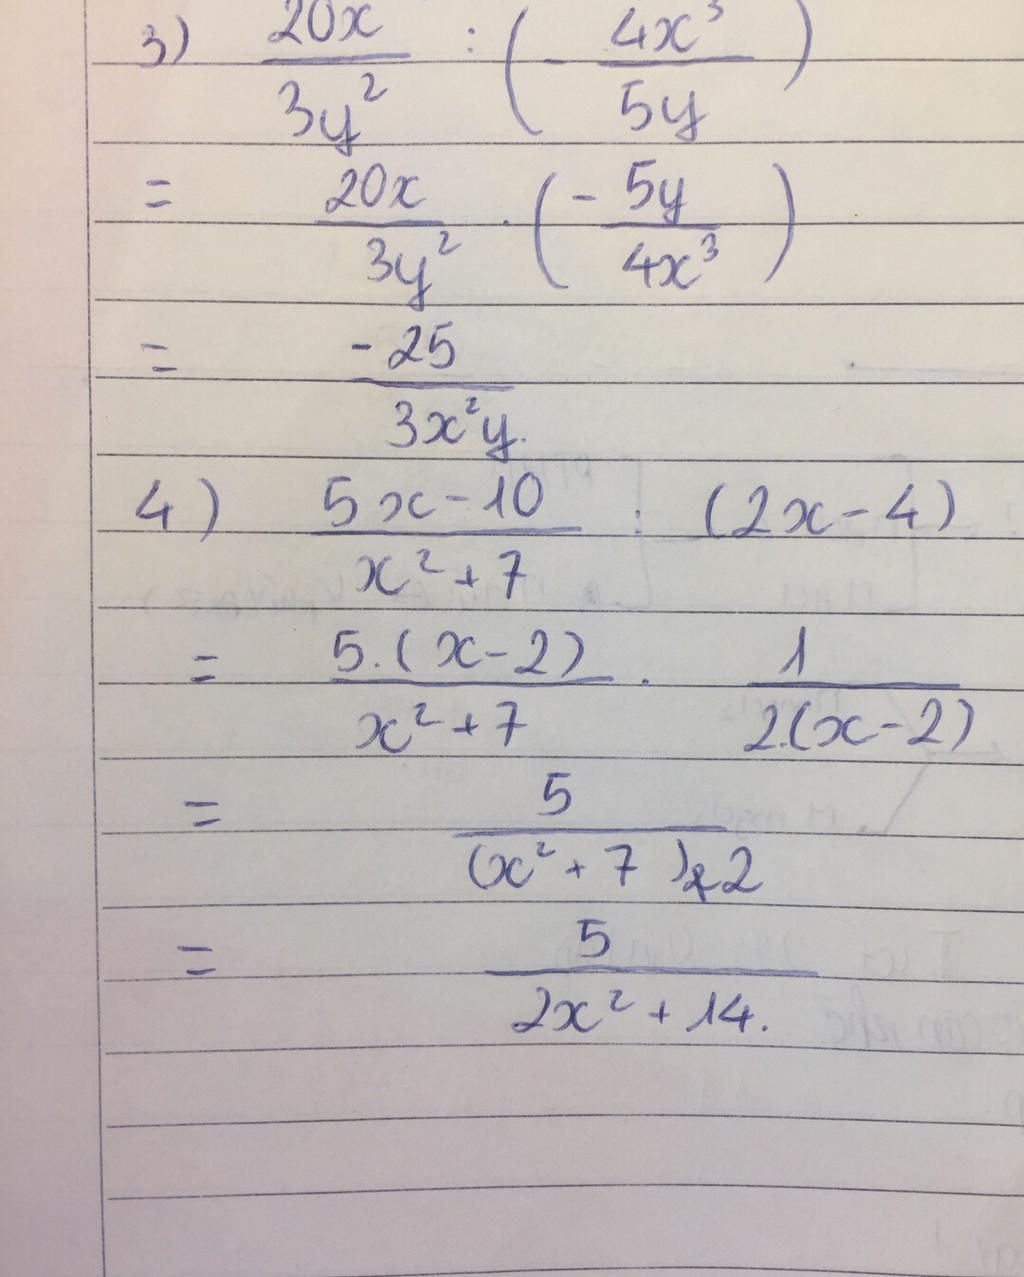 3) 20x/3y² : (- 4x³/5y)
= 20x/3y² . (- 5y/4x³)
= -25/3x²y.
4) 5x-10/x²+7 : (2x-4)
= 5.(x-2)/x²+7 . 1/2.(x-2)
= 5/(x²+7).2
= 5/2x²+14.